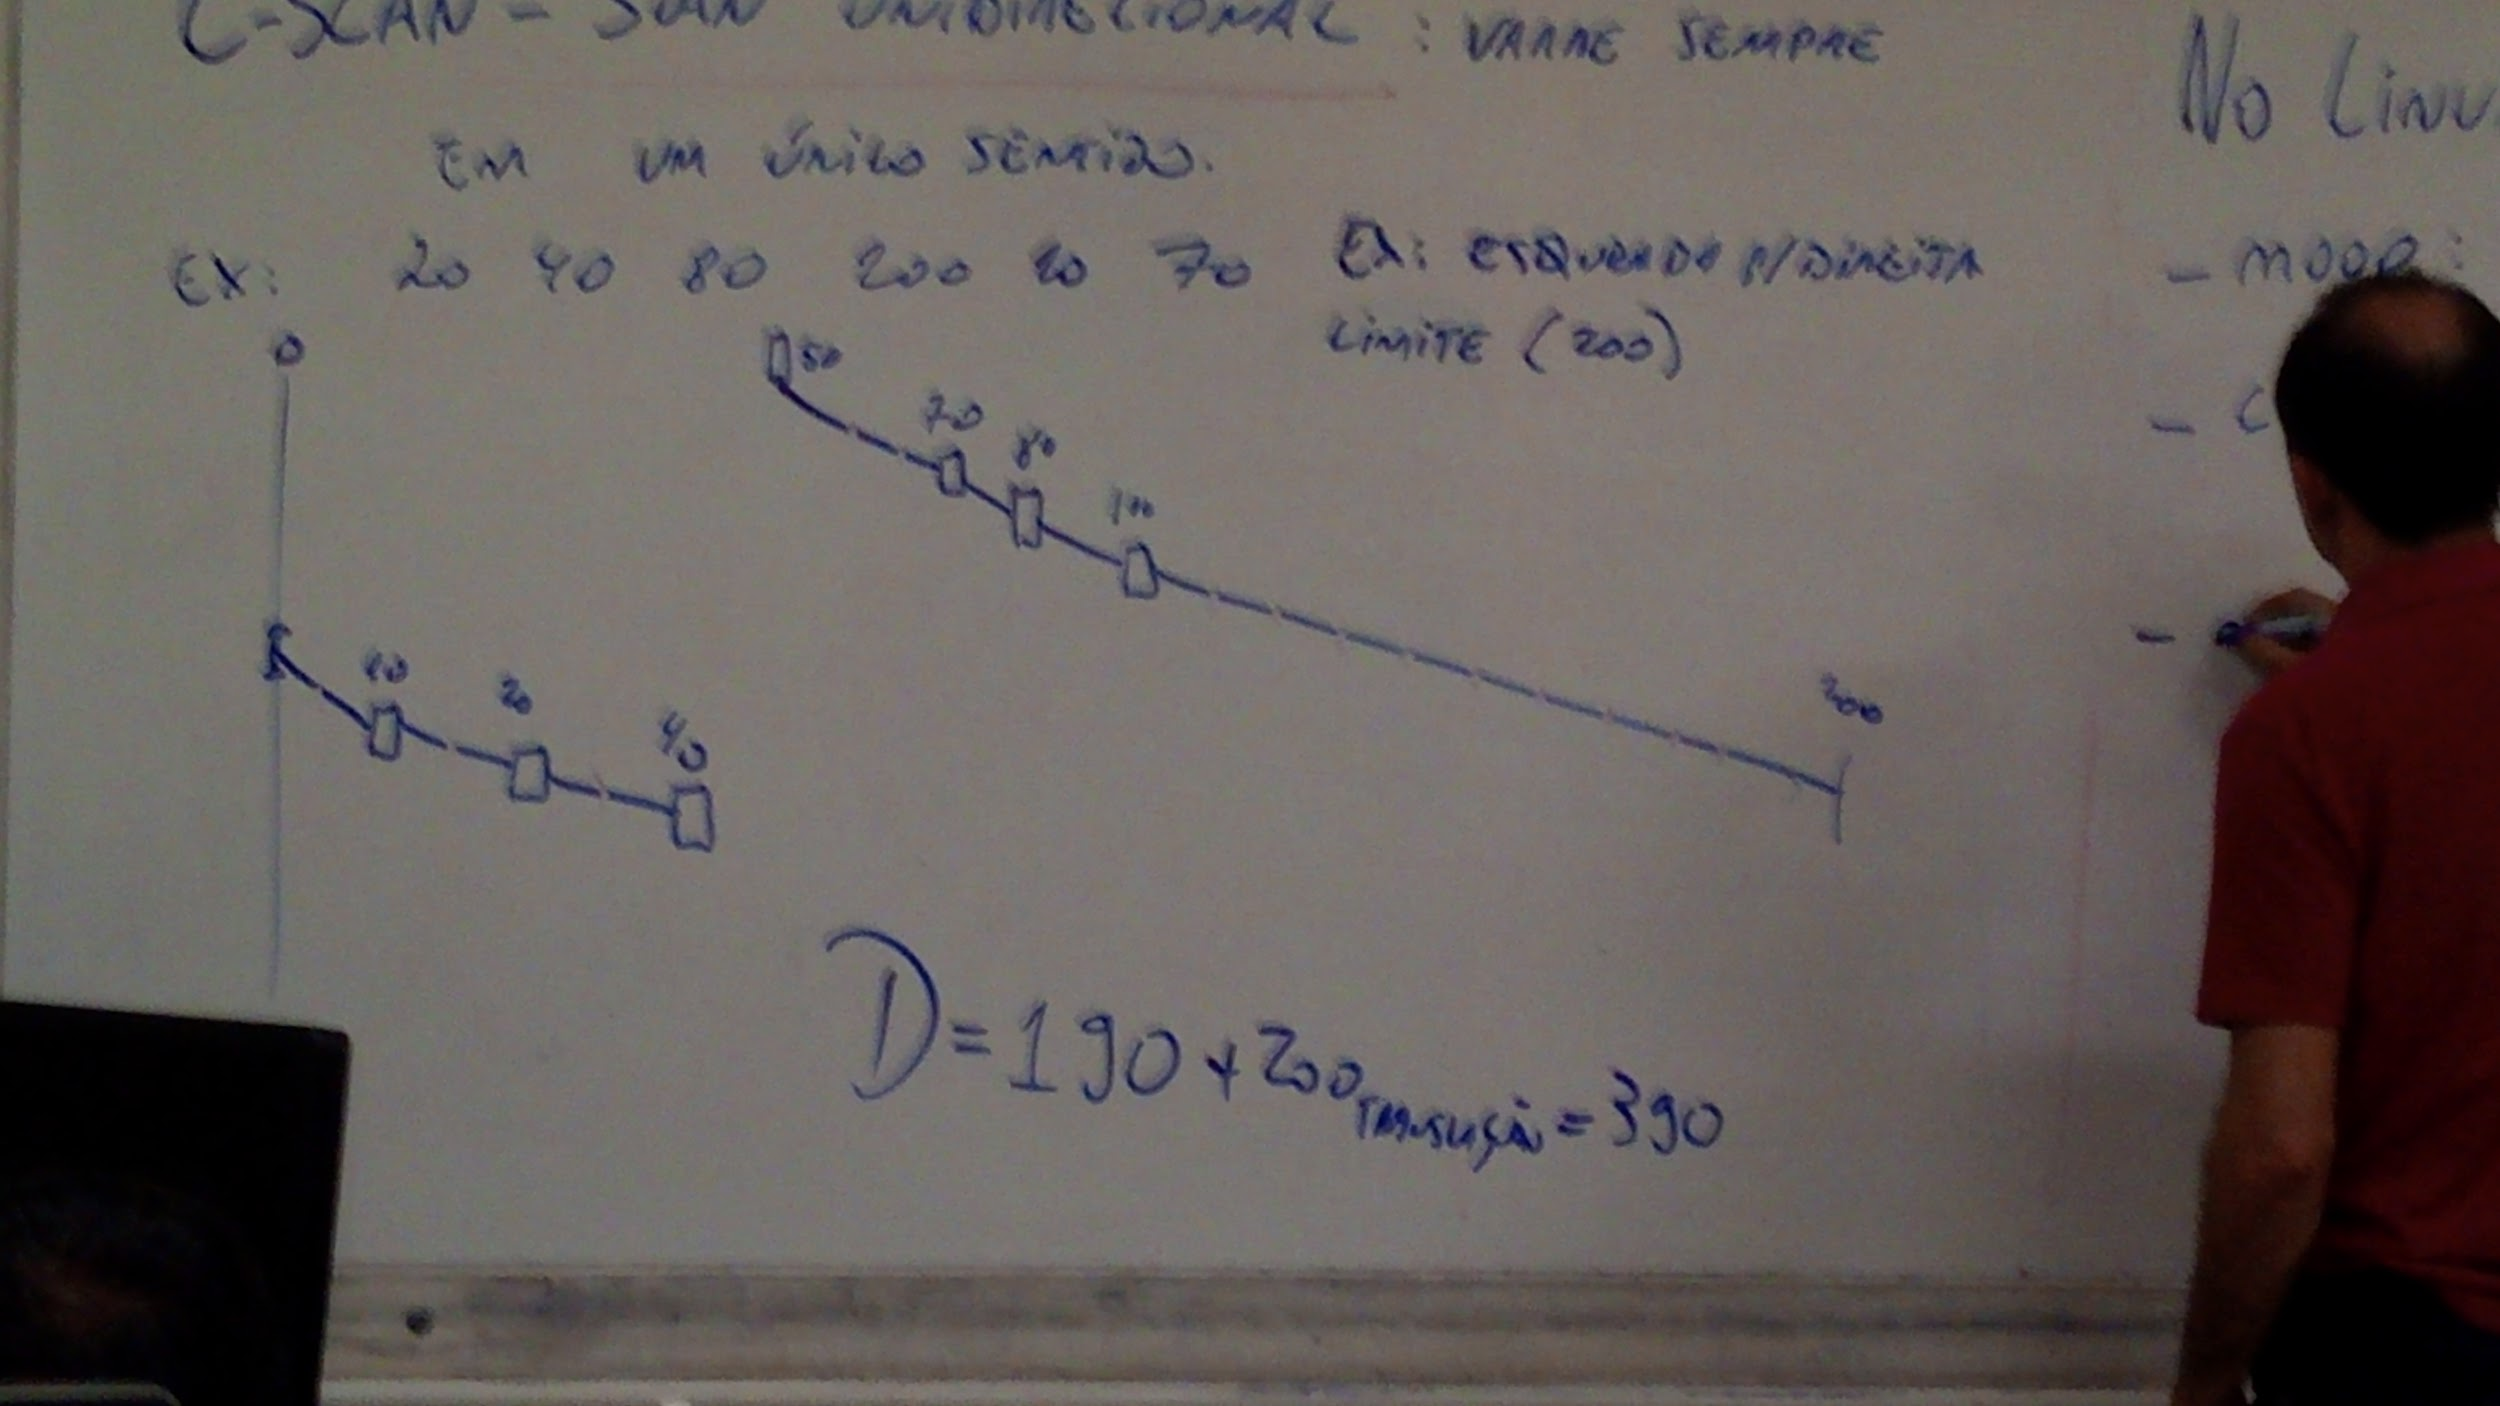 C-SCAN - SCAN UNIDIRECIONAL : VARRE SEMPRE
EM UM ÚNICO SENTIDO.
EX: 20 40 80 200 10 70 EX: ESQUERDA P/DIREITA
LIMITE (200)
0
50
70
80
100
200
10
20
40
D = 190 + 200 TRANSIÇÃO = 390
No LINU
- MODO :
- C
-